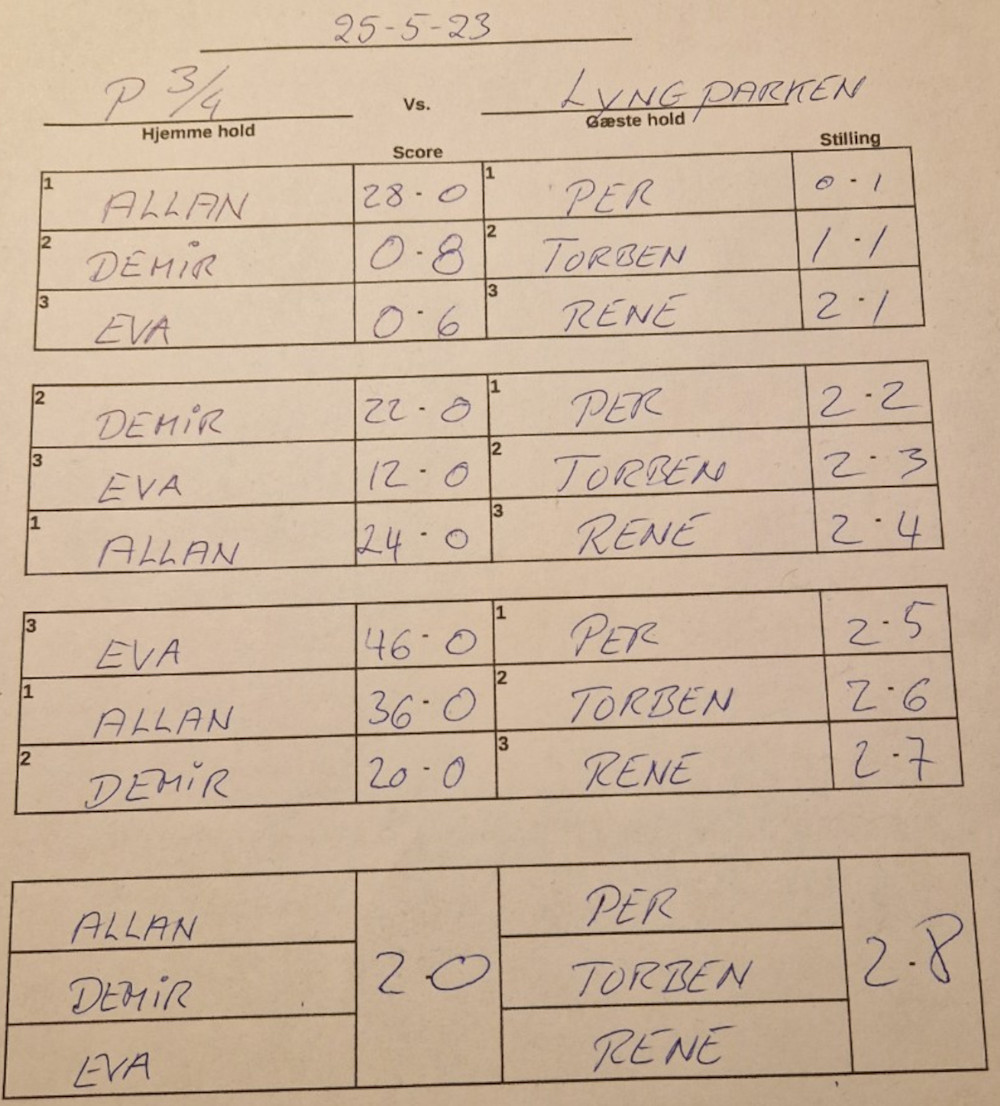 25-5-23
P 3/4 Vs. LYNGPARKEN
Hjemme hold Gæste hold
Score Stilling
1 ALLAN 28-0 1 PER 0-1
2 DEMiR 0-8 2 TORBEN 1-1
3 EVA 0-6 3 RENE 2-1
2 DEMiR 22-0 1 PER 2-2
3 EVA 12-0 2 TORBEN 2-3
1 ALLAN 24-0 3 RENE 2-4
3 EVA 46-0 1 PER 2-5
1 ALLAN 36-0 2 TORBEN 2-6
2 DEMiR 20-0 3 RENE 2-7
ALLAN PER
DEMiR 2-0 TORBEN 2-8
EVA RENE